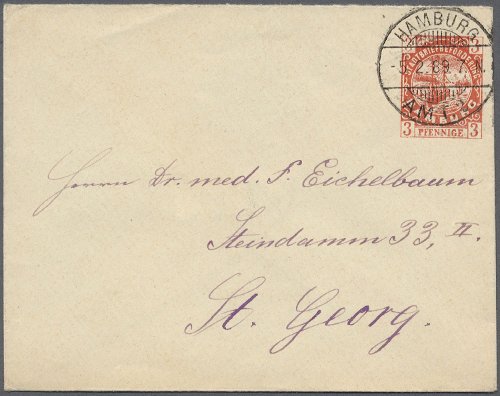 HAMBURG
3 3
STADTBRIEFBEFÖRDERUNG
-5.2.89.
AMT
3 PFENNIGE 3
Herrn Dr. med. F. Eichelbaum
Steindamm 33, II.
St. Georg.